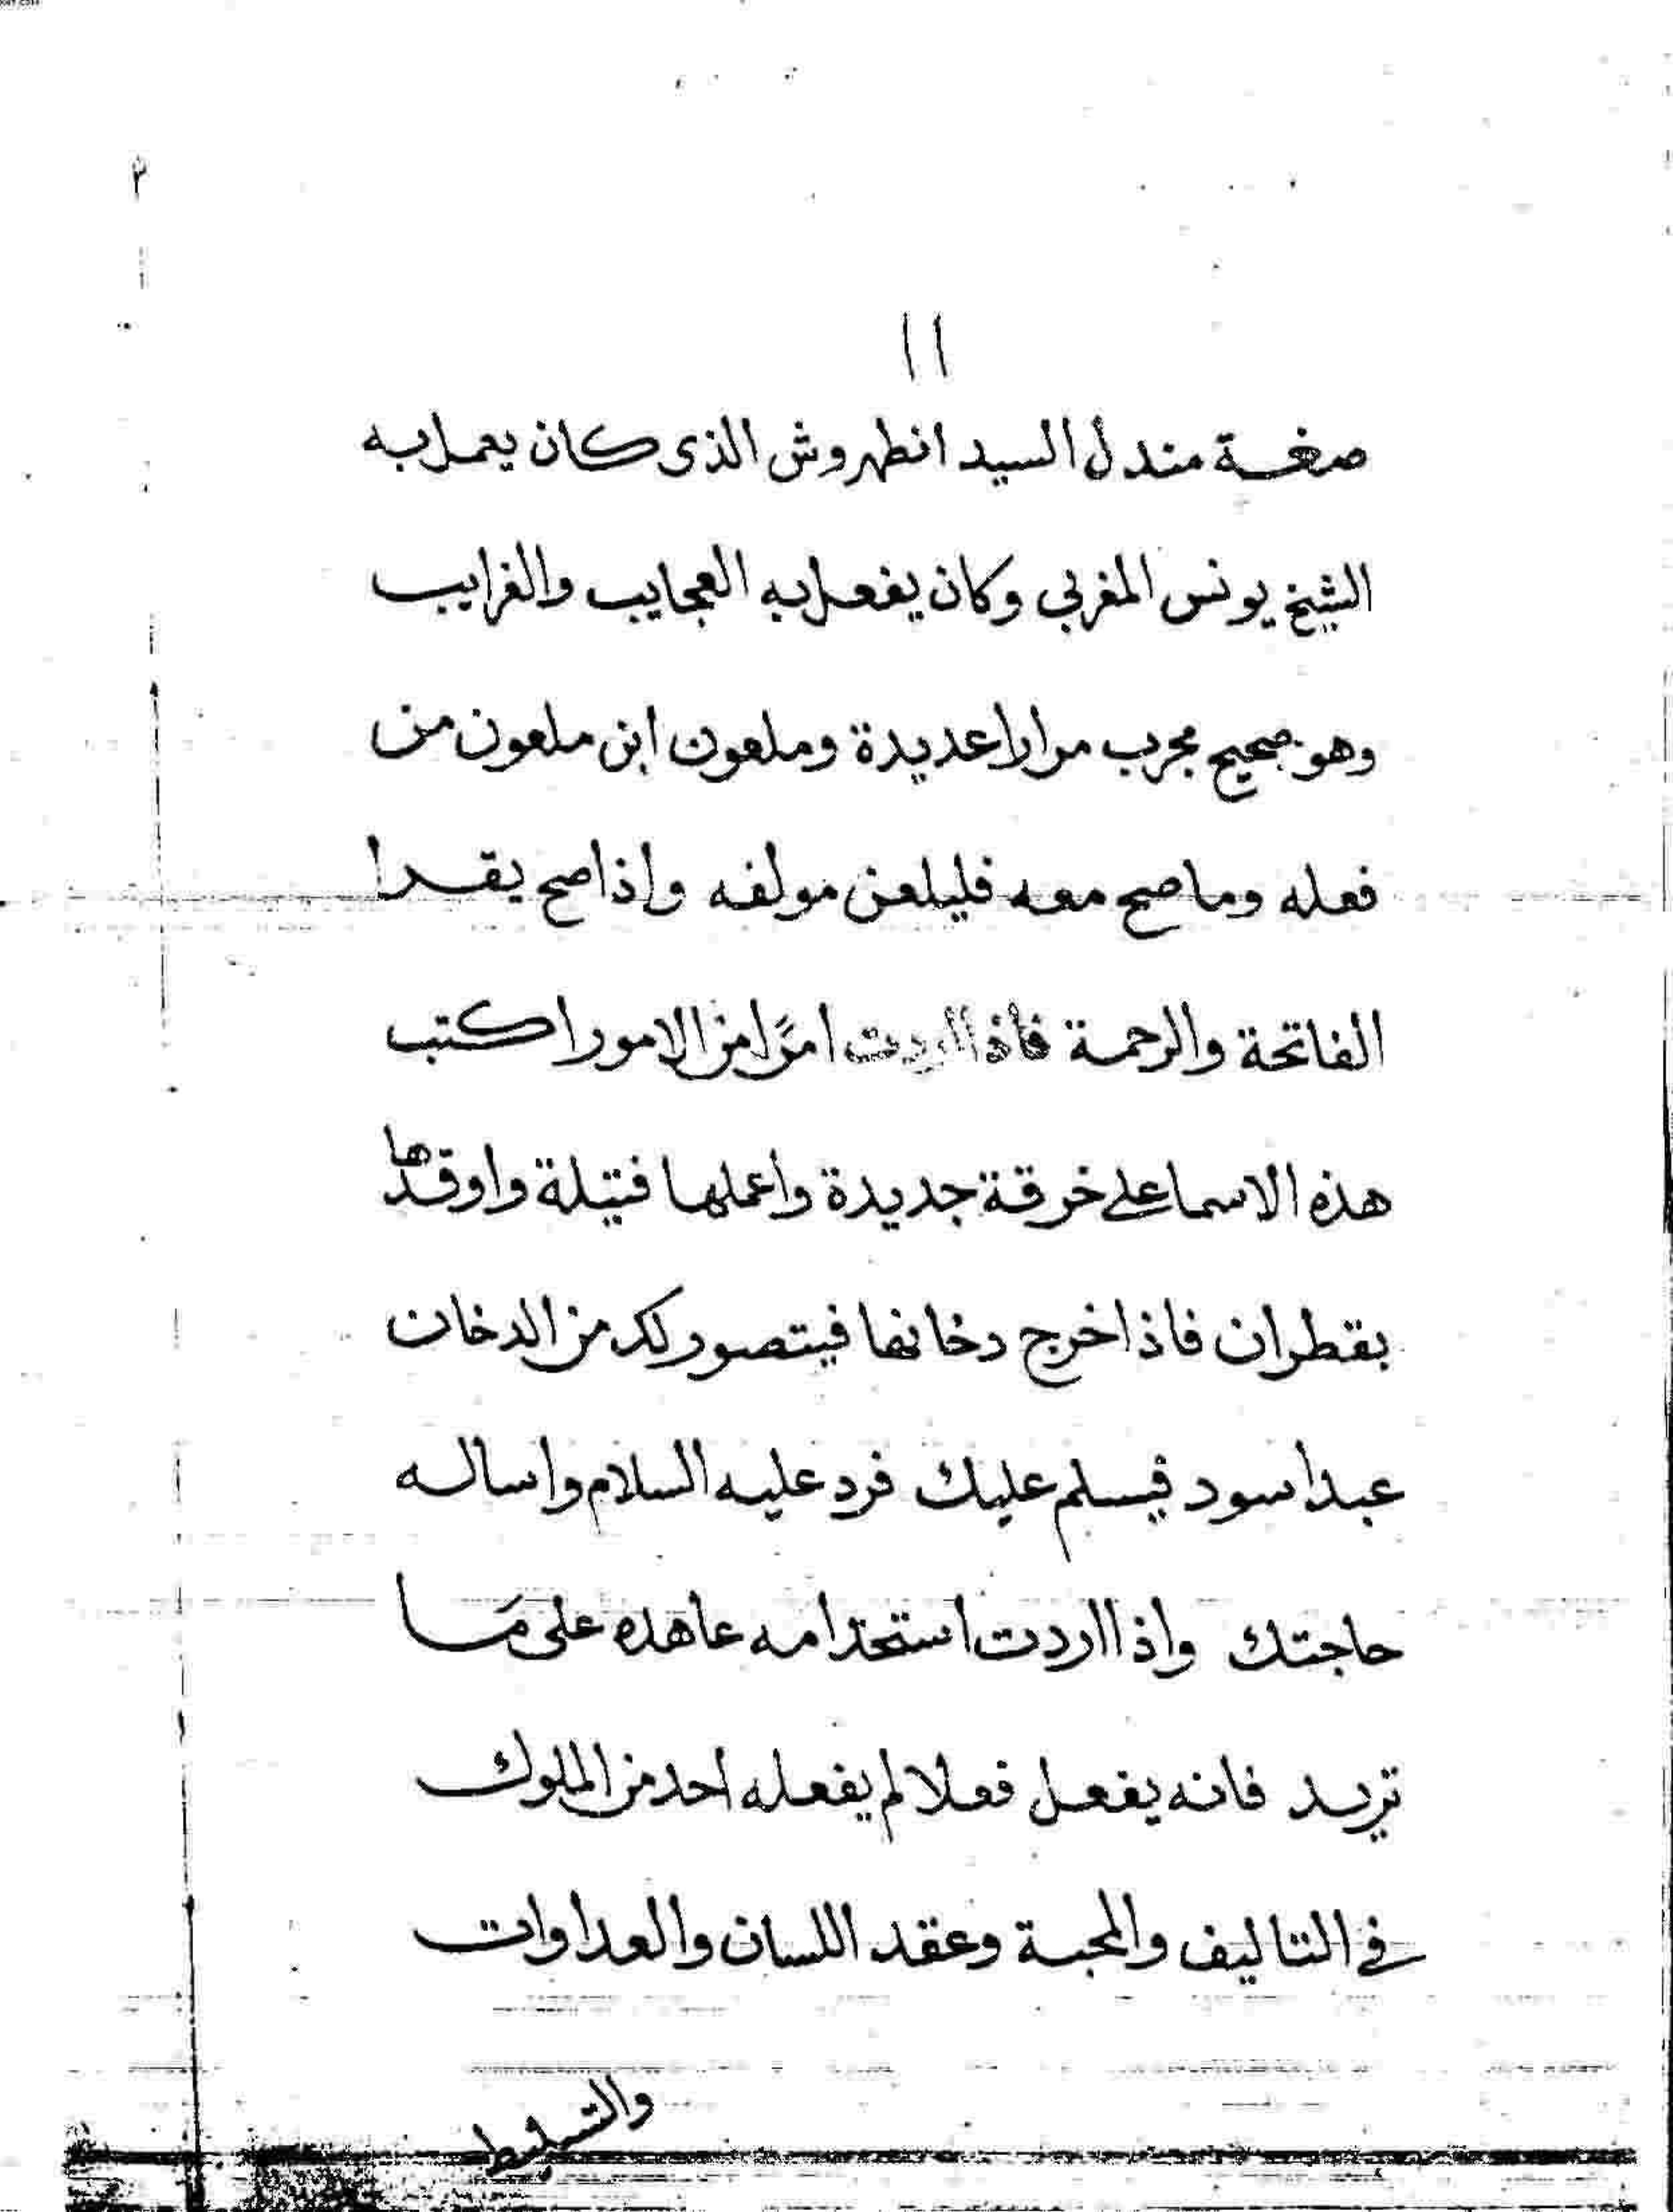 ٢
١١
صغة مندل السيد انطهروش الذى كان يعمل به
الشيخ يونس المغربي وكان يفعل به العجايب والغرايب
وهو صحيح مجرب مرارا عديدة وملعون ابن ملعون من
فعله وما صح معه فليلعن مولفه واذا صح يقرا
الفاتحة والرحمة فاذا اردت امرًا من الامور اكتب
هذه الاسما على خرقة جديدة واعملها فتيلة واوقدها
بقطران فاذا خرج دخانها فيتصور لك من الدخان
عبد اسود فيسلم عليك فرد عليه السلام واساله
حاجتك واذا اردت استخدامه عاهده على مَا
تريد فانه يفعل فعلا لم يفعله احد من الملوك
في التاليف والمحبة وعقد اللسان والعداوات
والتسليط